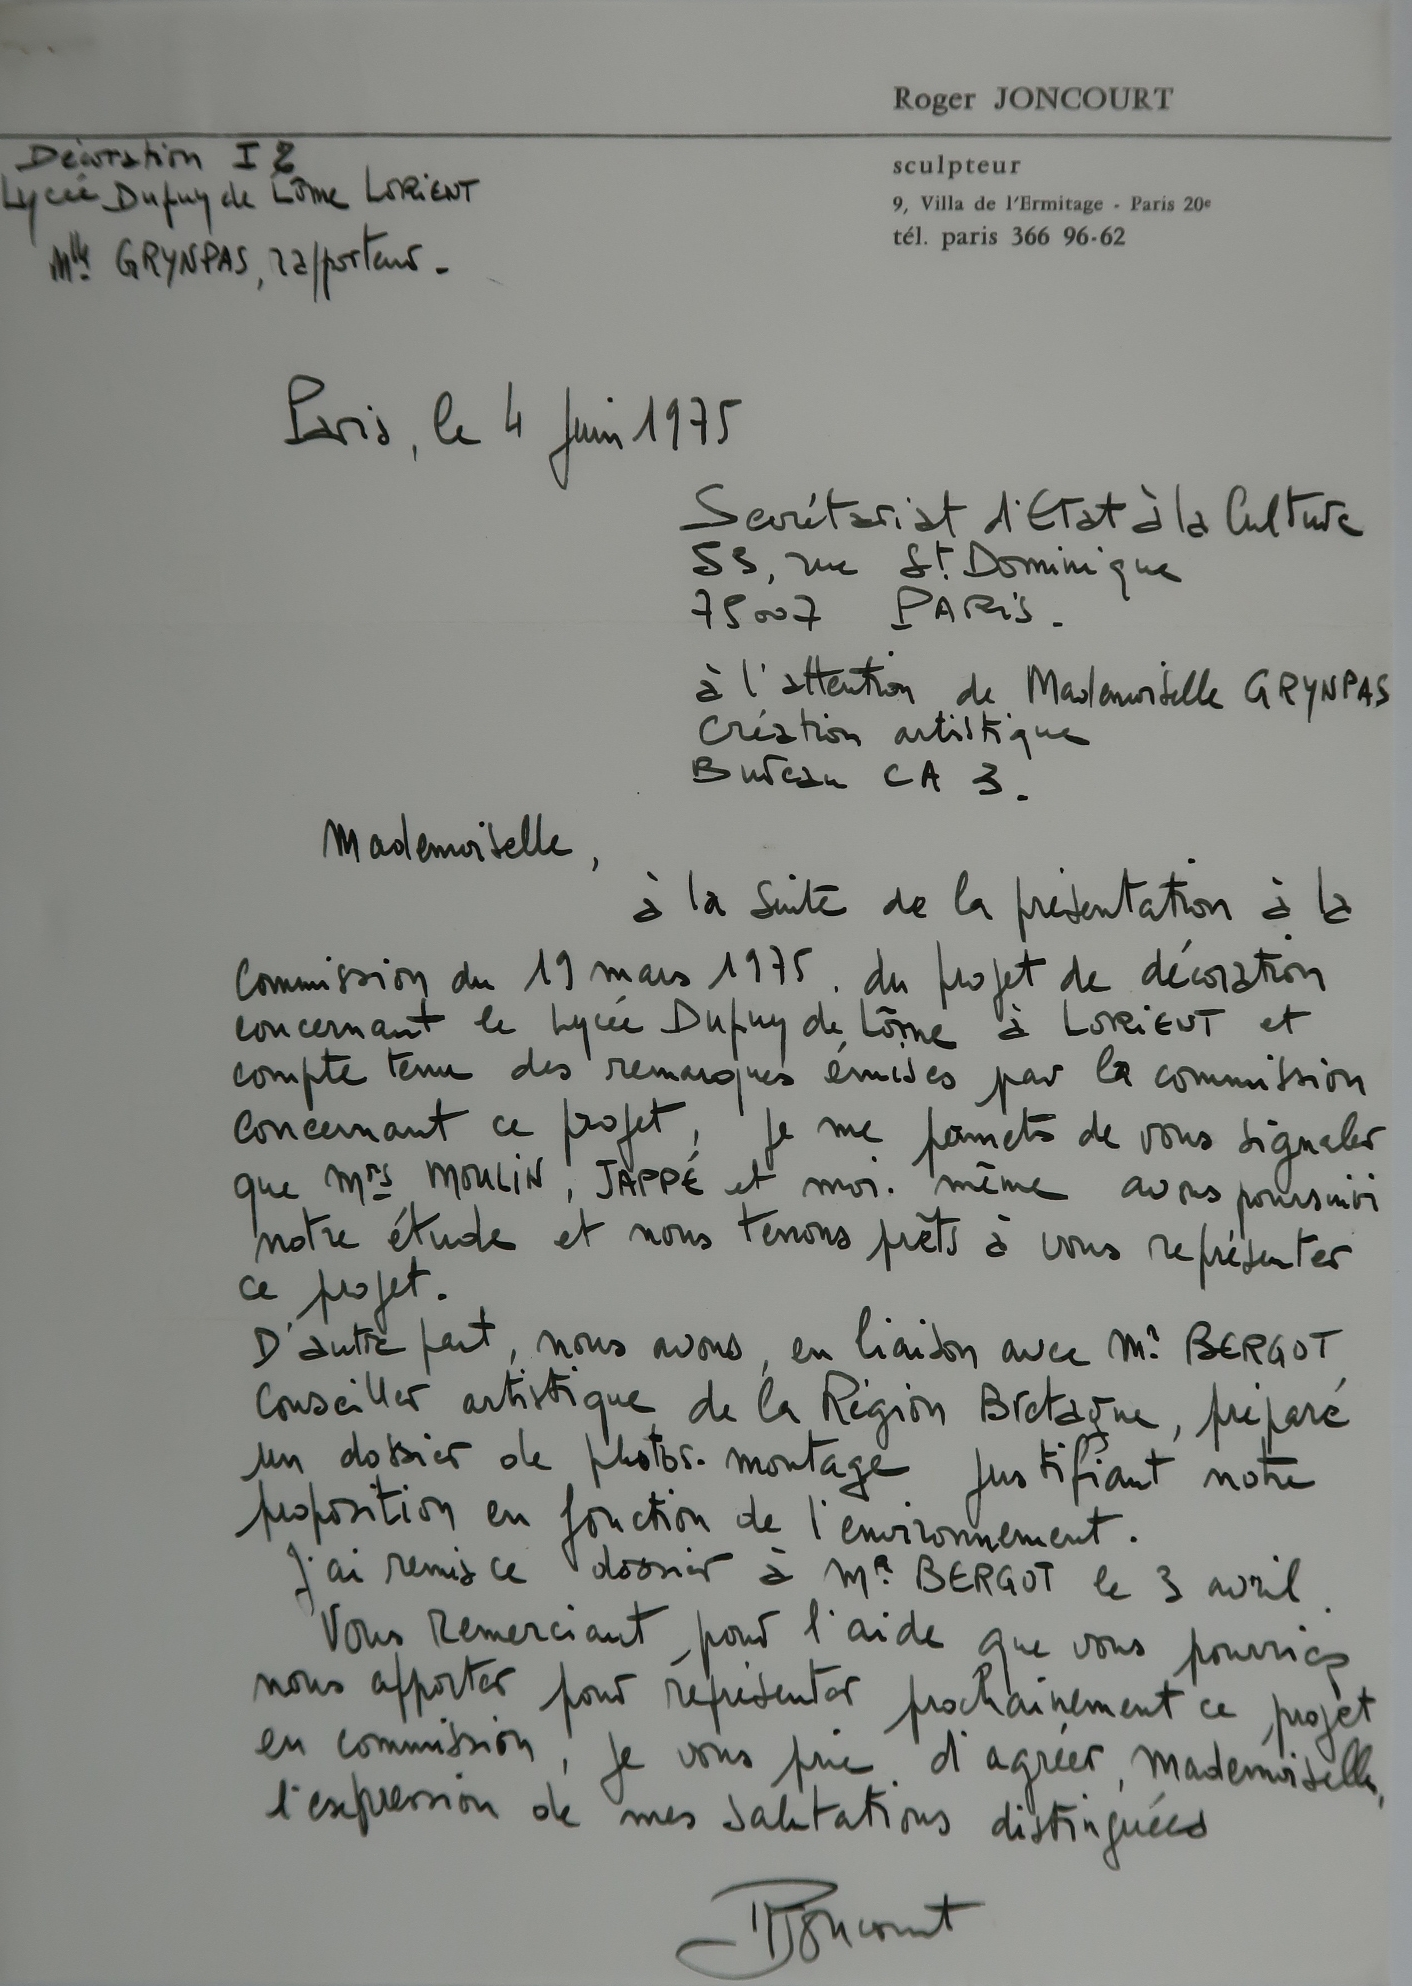 Roger JONCOURT
sculpteur
9, Villa de l'Ermitage - Paris 20e
tél. paris 366 96-62
Décoration I %
Lycée Dupuy de Lôme LORIENT
Mlle GRYNPAS, rapporteur.
Paris, le 4 Juin 1975
Secrétariat d'Etat à la Culture
53, rue St. Dominique
75007 PARIS.
à l'attention de Mademoiselle GRYNPAS
Création artistique
Bureau CA 3.
Mademoiselle,
à la suite de la présentation à la
Commission du 19 mars 1975. du projet de décoration
concernant le Lycée Dupuy de Lôme à LORIENT et
compte tenu des remarques émises par la commission
concernant ce projet, je me permets de vous signaler
que Mrs MOULIN, JAPPÉ et moi-même avons poursuivi
notre étude et nous tenons prêts à vous représenter
ce projet.
D'autre part, nous avons, en liaison avec Mr BERGOT
Conseiller artistique de la Région Bretagne, préparé
un dossier de photos-montage justifiant notre
proposition en fonction de l'environnement.
J'ai remis ce dossier à MR BERGOT le 3 avril.
Vous remerciant pour l'aide que vous pourriez
nous apporter pour représenter prochainement ce projet
en commission, je vous prie d'agréer, Mademoiselle,
l'expression de mes salutations distinguées
RJoncourt